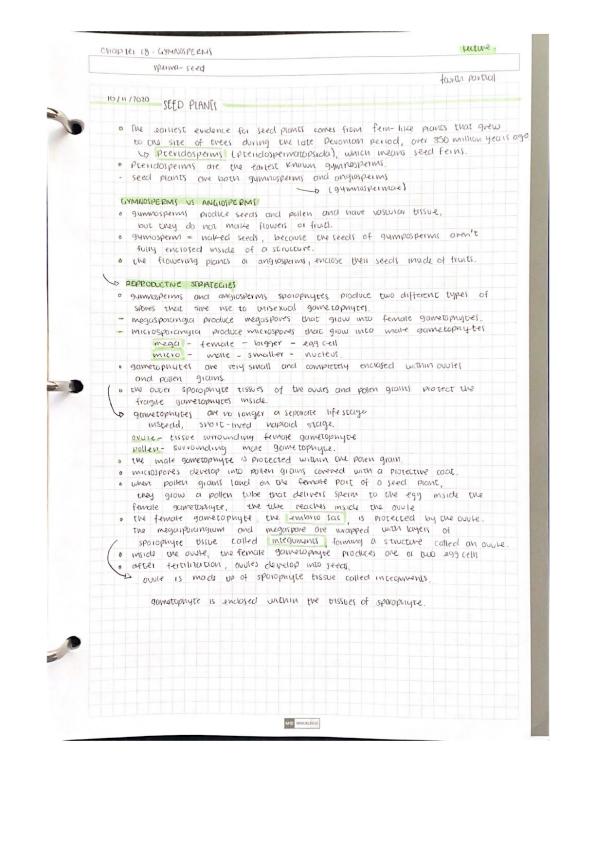 Chapter 18 - GYMNOSPERMS
Lecture
sperma - seed
fourth partial
10/11/2020
SEED PLANTS
The earliest evidence for seed plants comes from fern-like plants that grew
to the size of trees during the late Devonian Period, over 350 million years ago
↳ Pteridosperms (Pteridospermatopsida), which means seed ferns.
Pteridosperms are the earliest known gymnosperms.
- seed plants are both gymnosperms and angiosperms
→ (gymnospermae)
GYMNOSPERMS VS ANGIOSPERMS
gymnosperms produce seeds and pollen and have vascular tissue,
but they do not make flowers or fruit.
gymnosperm = naked seeds, because the seeds of gymnosperms aren't
fully enclosed inside of a structure.
the flowering plants or angiosperms, enclose their seeds inside of fruits.
REPRODUCTIVE STRATEGIES
gymnosperms and angiosperms sporophytes produce two different types of
spores that give rise to unisexual gametophytes.
- megasporangia produce megaspores that grow into female gametophytes.
- microsporangia produce microspores that grow into male gametophytes
mega - female - bigger - egg cell
micro - male - smaller - nucleus.
gametophytes are very small and completely enclosed within ovules
and pollen grains.
the outer sporophyte tissues of the ovules and pollen grains protect the
fragile gametophytes inside.
gametophytes are no longer a separate life stage
instead, short-lived haploid stage.
ovule - tissue surrounding female gametophyte
pollen - surrounding male gametophyte.
the male gametophyte is protected within the pollen grain.
microspores develop into pollen grains covered with a protective coat.
when pollen grains land on the female part of a seed plant,
they grow a pollen tube that delivers sperm to the egg inside the
female gametophyte, the tube reaches inside the ovule
the female gametophyte, the embrio sac, is protected by the ovule.
the megasporangium and megaspore are wrapped with layers of
sporophyte tissue called integuments, forming a structure called an ovule.
inside the ovule, the female gametophyte produces one or two egg cells
after fertilization, ovules develop into seeds.
ovule is made up of sporophyte tissue called integuments.
gametophyte is enclosed within the tissues of sporophyte.